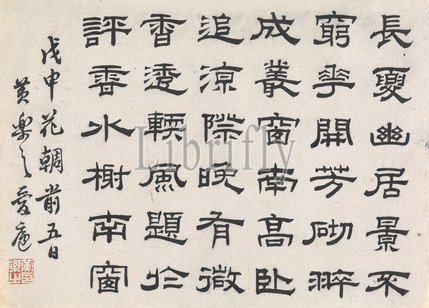 長夏幽居景不
窮華開芳砌翠
成叢窗南高臥
追涼際晚有微
香透輭風題於
評香水榭南窗
戊申花朝前五日
黃樂之愛廬
Librifly